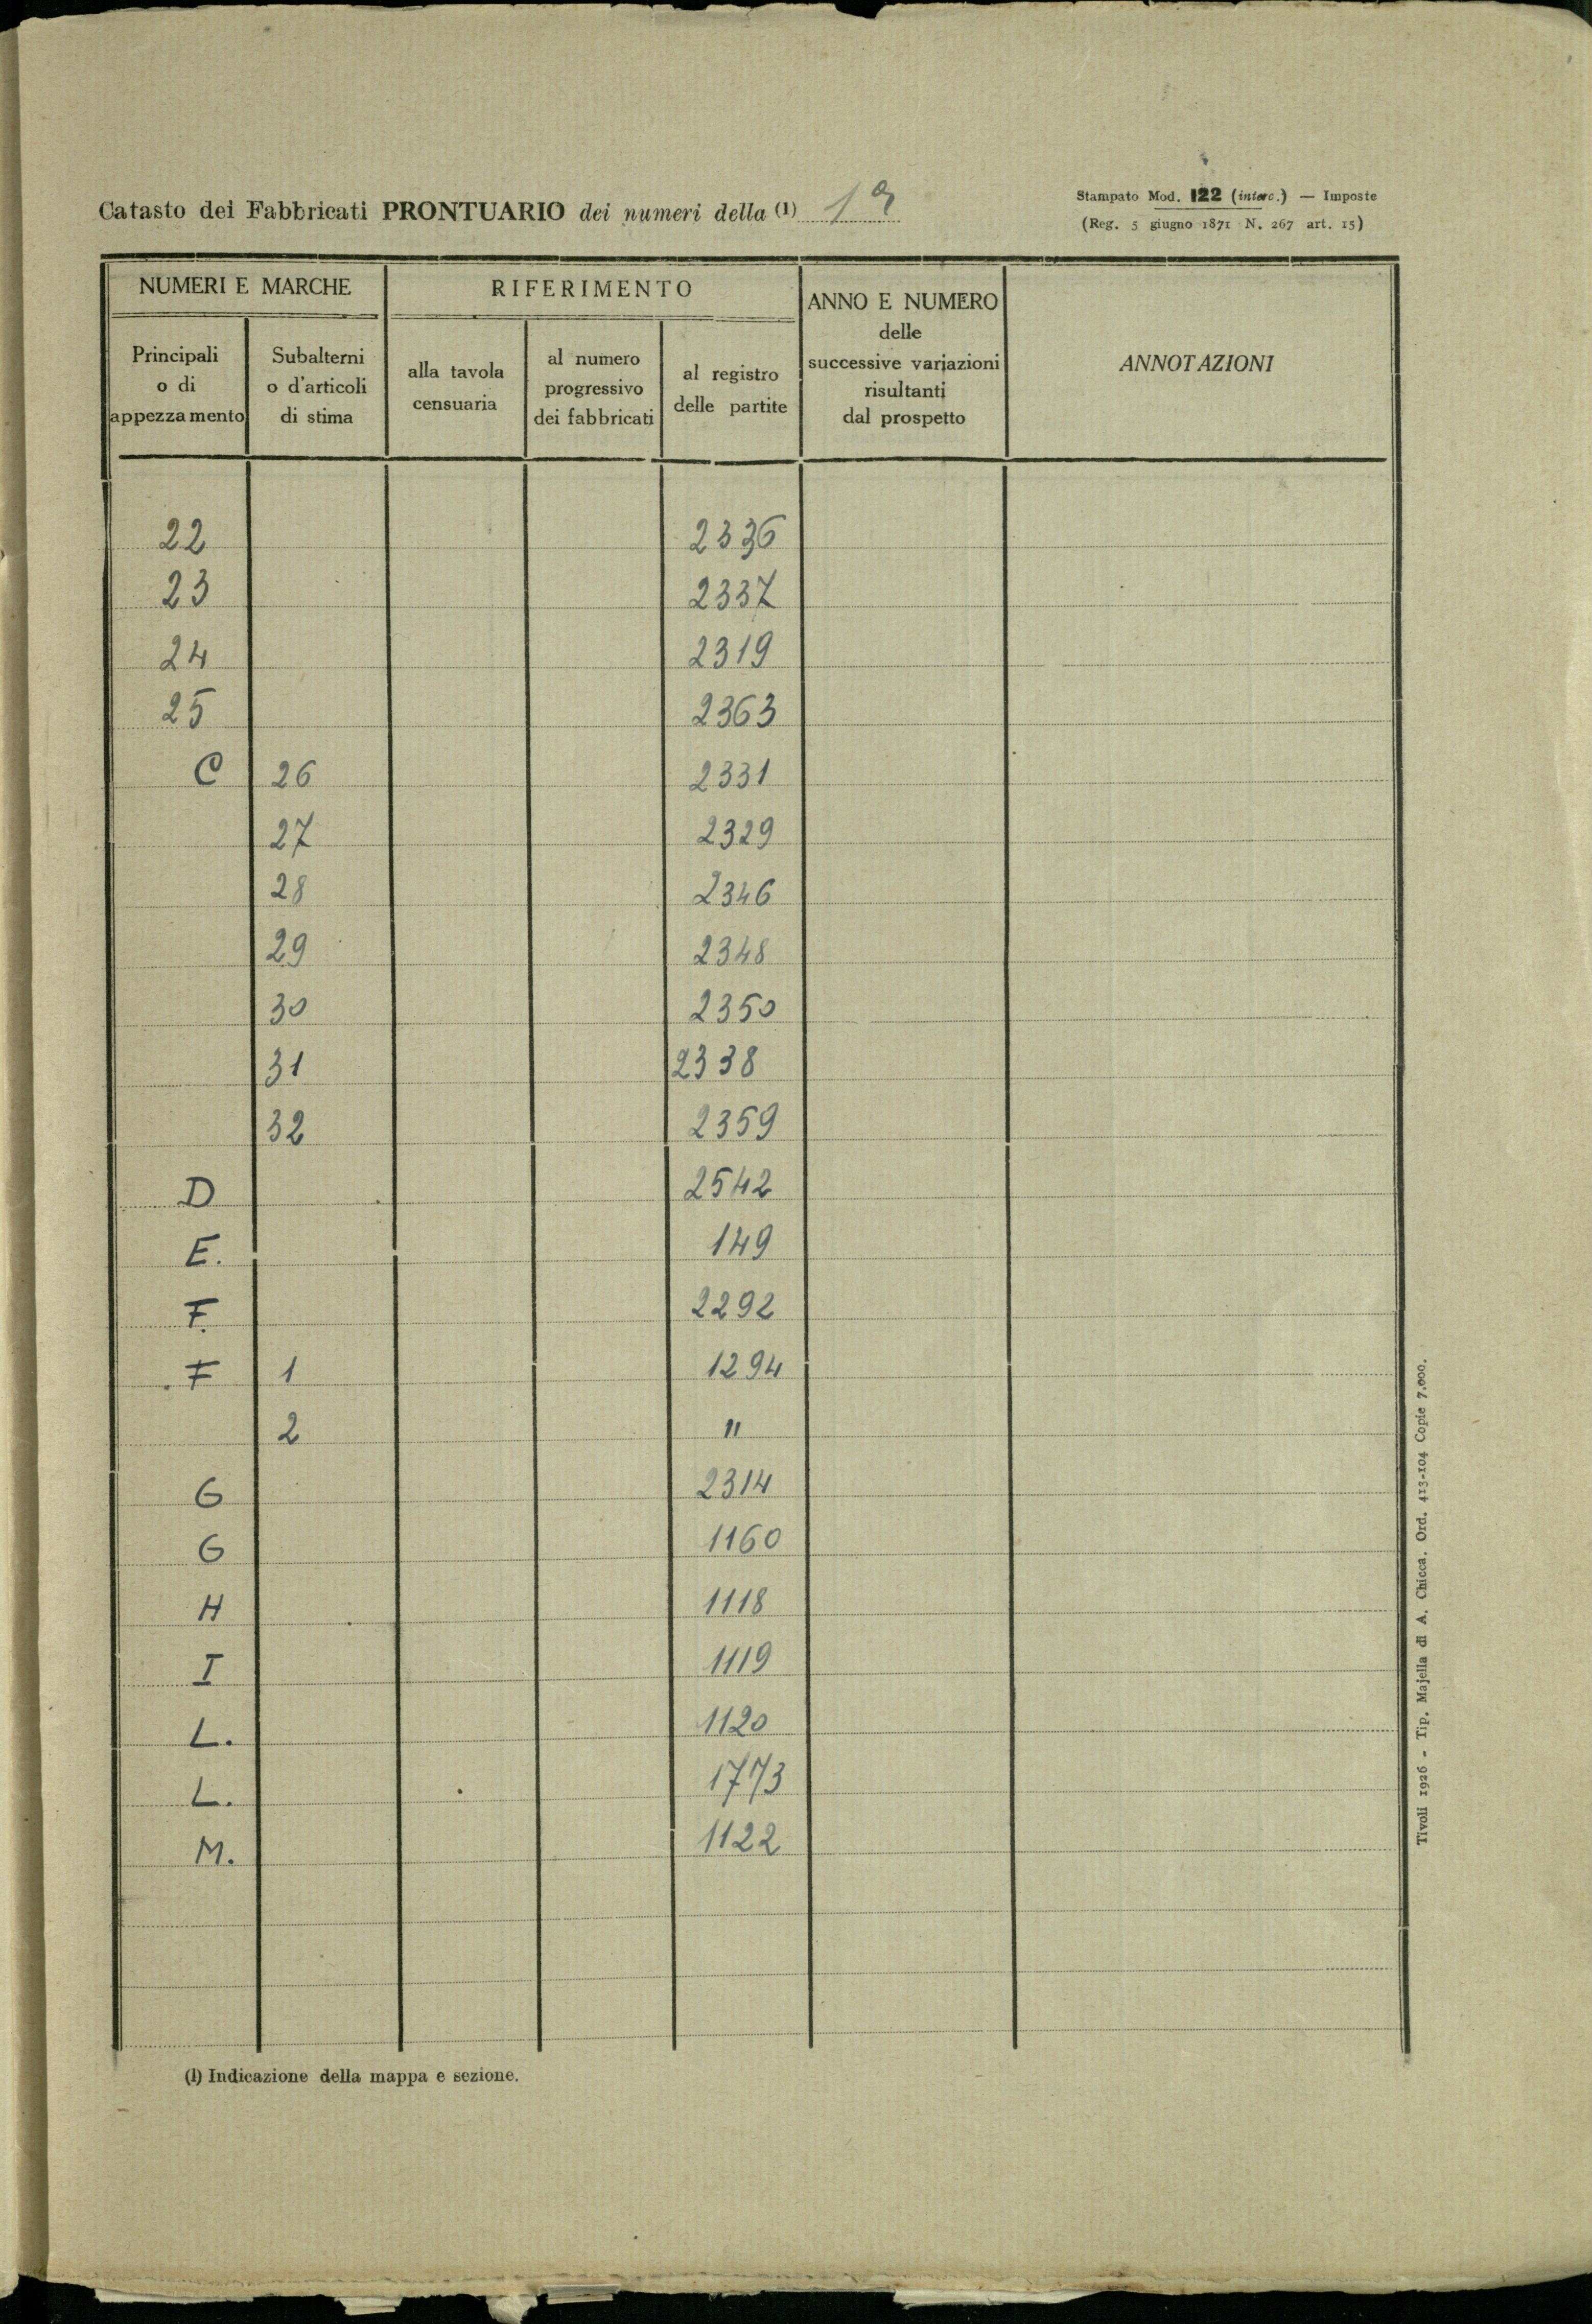 Catasto dei Fabbricati PRONTUARIO dei numeri della (1) 1ª
Stampato Mod. 122 (interc.) — Imposte
(Reg. 5 giugno 1871 N. 267 art. 15)
NUMERI E MARCHE
RIFERIMENTO
ANNO E NUMERO
delle
successive variazioni
risultanti
dal prospetto
ANNOTAZIONI
Principali
o di
appezzamento
Subalterni
o d'articoli
di stima
alla tavola
censuaria
al numero
progressivo
dei fabbricati
al registro
delle partite
22 2336
23 2337
24 2319
25 2363
C 26 2331
27 2329
28 2346
29 2348
30 2350
31 2338
32 2359
D 2542
E. 149
F. 2292
F 1 1294
2 "
G 2314
G 1160
H 1118
I 1119
L. 1120
L. 1773
M. 1122
(1) Indicazione della mappa e sezione.
Tivoli 1926 - Tip. Majella di A. Chicca. Ord. 413-104 Copie 7.000.